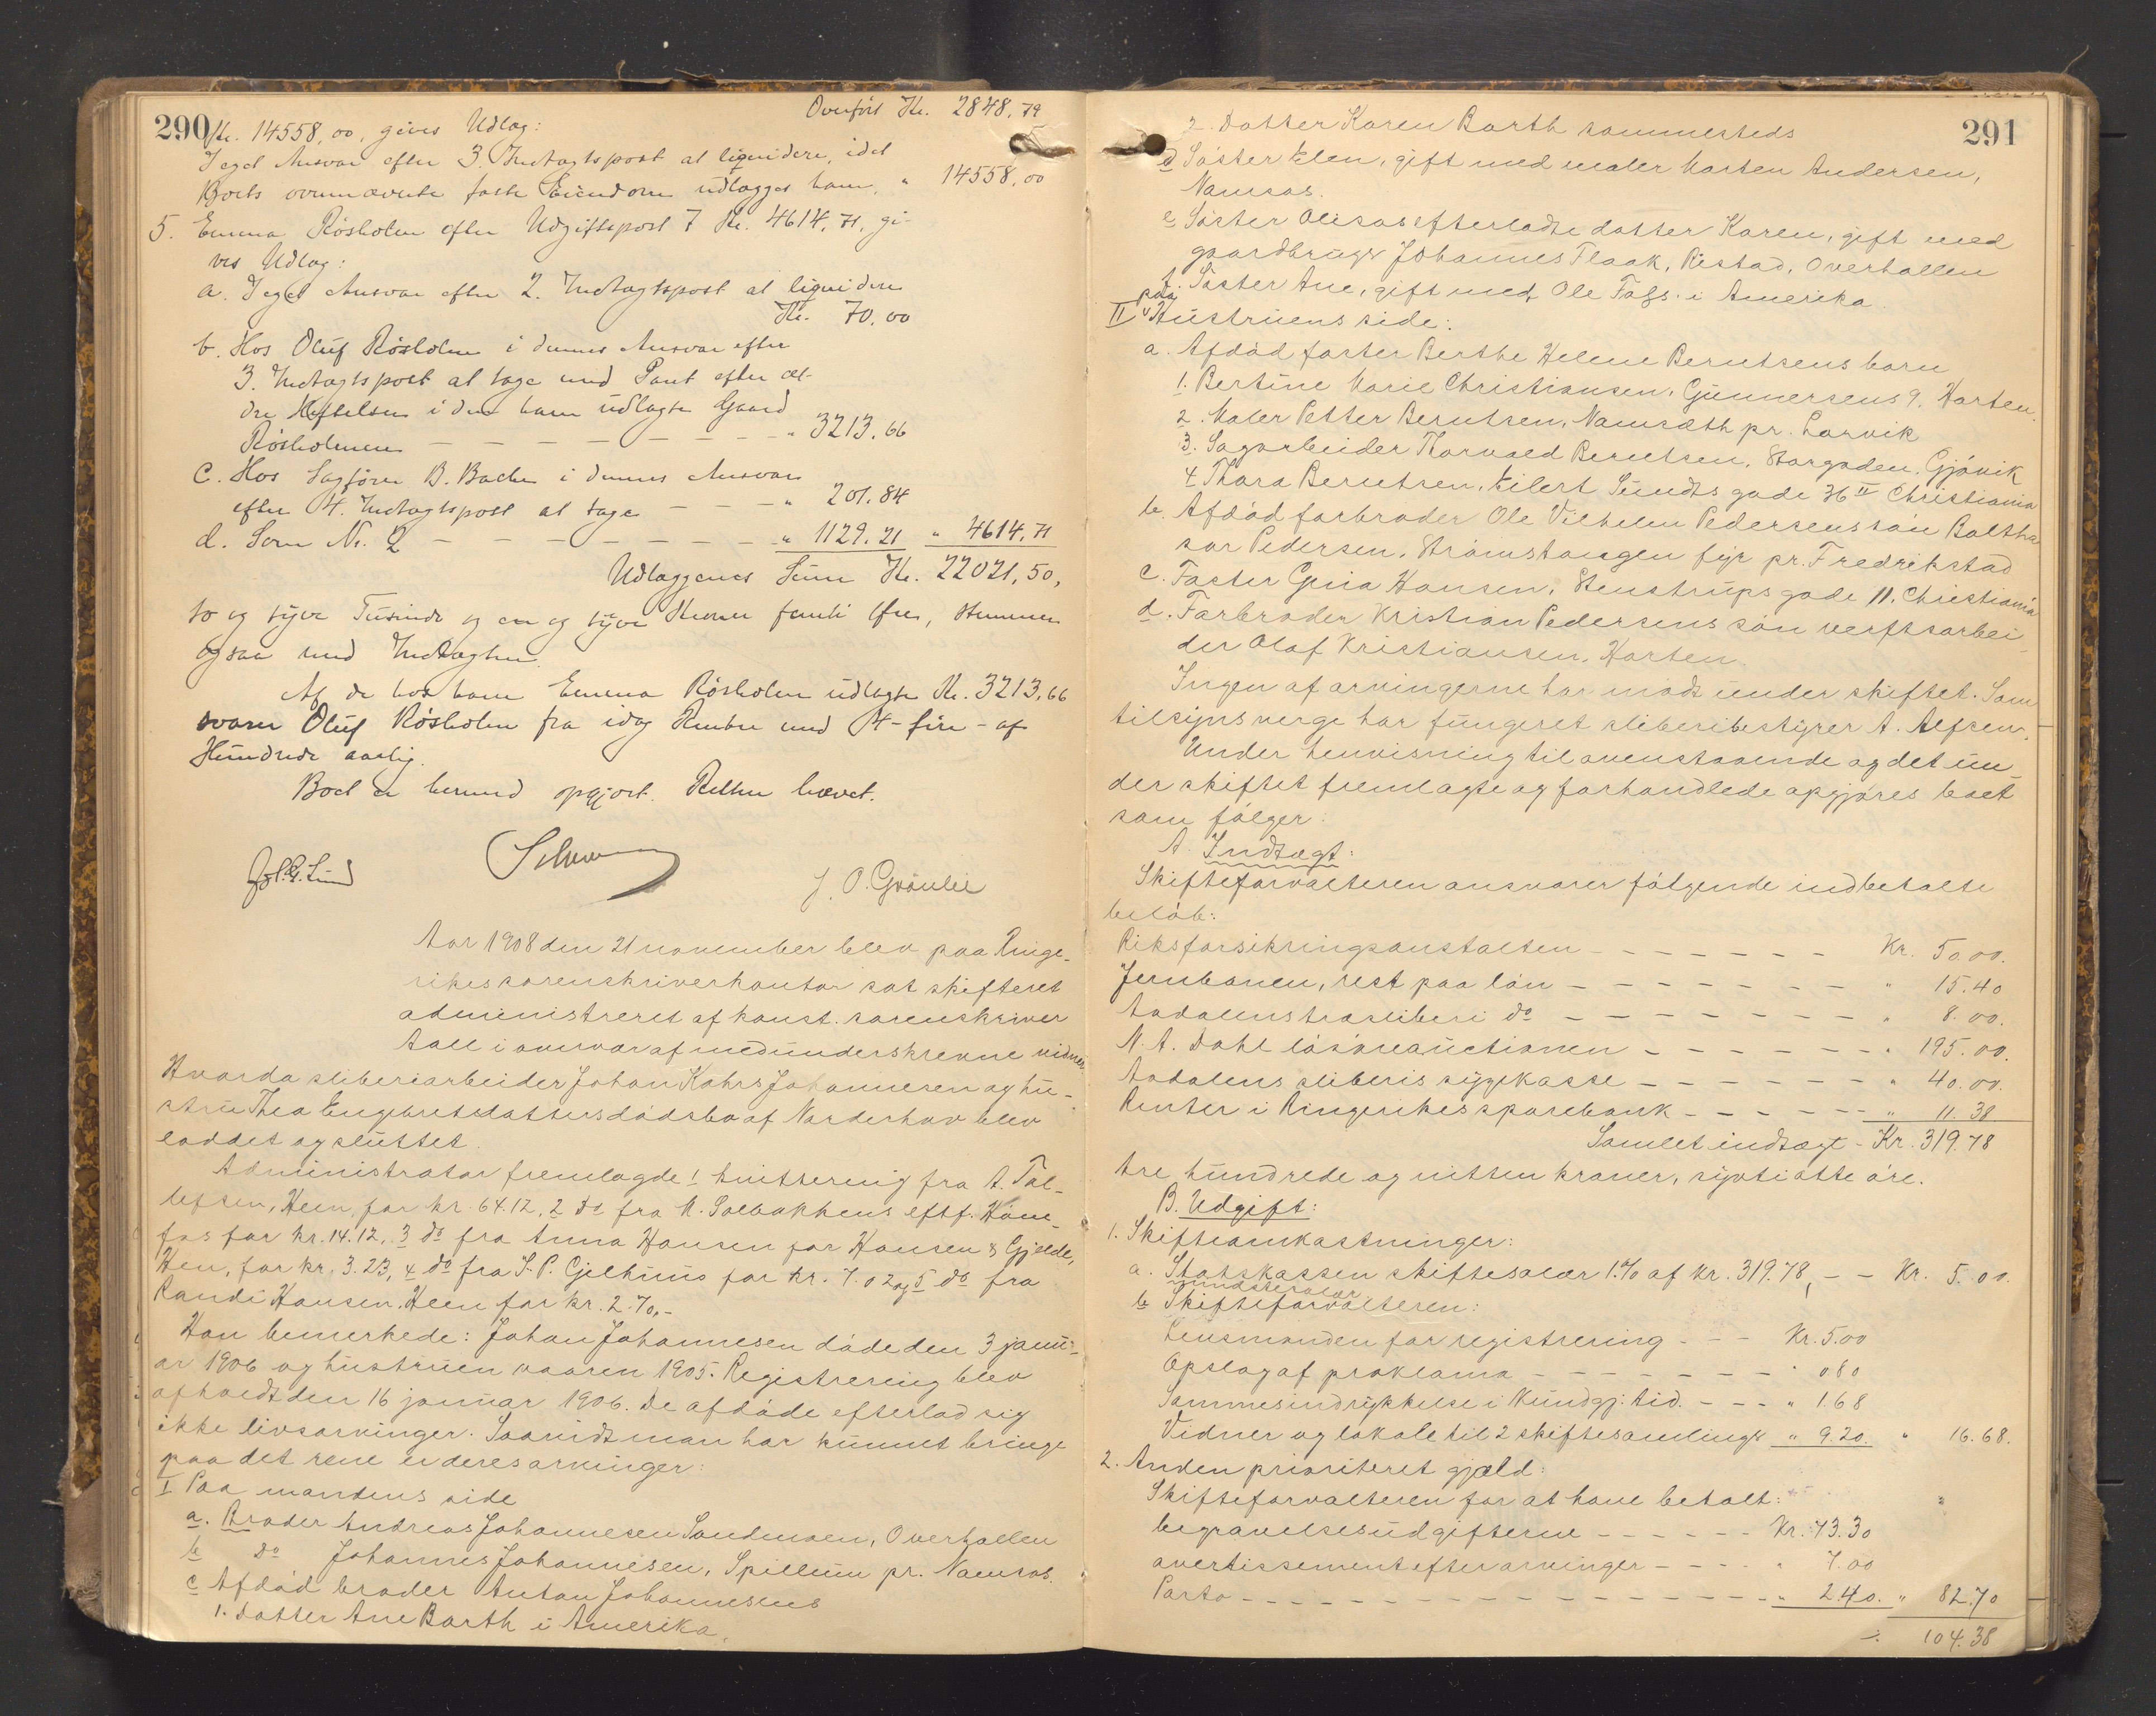 290
Overført Kr. 2848,79
Kr. 14558,00, gives Udlæg:
I eget Ansvar efter 3. Indtægtspost at liquidere, idet
Boets ovennævnte faste Eiendom udlægges ham, " 14558,00
5. Emma Røsholm efter Udgiftspost 7 Kr. 4614,71, gi-
ves Udlæg:
a. I eget Ansvar efter 2. Indtægtspost at liquidere
Kr. 70,00
b. Hos Oluf Røsholm i dennes Ansvar efter
3. Indtægtspost at tage med Pant efter æl-
dre Heftelser i den ham udlagte Gaard
Røsholmen — — — — — — — " 3213.66
C. Hos Sagfører B. Bache i dennes Ansvar
efter 4. Indtægtspost at tage — — — " 201.84
d. Som Nr. 2 — — — — — — — " 1129.21 " 4614.71
Udlæggenes Sum Kr. 22021,50,
to og tyve Tusinde og en og tyve Kroner femti Øre, stemmer
ogsaa med Indtægten.
Af de hos ham Emma Røsholm udlagte Kr. 3213,66
svarer Oluf Røsholm fra idag Renter med 4 - fire - af
Hundrede aarlig.
Boet er hermed opgjort. Retten hævet.
J. O. Grønlie
Aar 1908 den 21 november blev paa Ringe-
rikes sorenskriverkontor sat skifteret
administreret af konst. sorenskriver
Aall i overvær af medunderskrevne vidner.
Hvorda sliberiarbeider Johan Kahrs Johannesen og hu-
stru Thea Engebretsdatters dødsbo af Norderhov blev
loddet og sluttet.
Administrator fremlagde 1 kvittering fra A. Tol-
lefsen, Heen, for kr. 64.12, 2 do fra M. Solbakkens eftf. Høne-
fos for kr. 14.12, 3 do fra Anna Hansen for Hansen & Gjelde,
Hen, for kr. 3.23, 4 do fra S. P. Gjelhuus for kr. 7.02 og 5 do fra
Randi Hansen, Heen for kr. 2.70.-
Han bemerkede: Johan Johannesen døde den 3 janu-
ar 1906 og hustruen vaaren 1905. Registrering blev
afholdt den 16 januar 1906. De afdøde efterlod sig
ikke livsarvinger. Saavidt man har kunnet bringe
paa det rene er deres arvinger:
I Paa mandens side
a. Broder Andreas Johannesen Sandmoen, Overhallen
b do Johannes Johannesen, Spillum pr. Namsos.
c Afdød broder Anton Johannesens
1. datter Ane Barth i Amerika.
291
2. datter Karen Barth sammesteds
d Søster Elen, gift med maler Morten Andersen,
Namsos.
e Søster Olisas efterladte datter Karen, gift med
gaardbruger Johannes Flaak, Ristad, Overhallen
f. Søster Ane, gift med Ole Foss i Amerika.
II paa Hustruens side:
a. Afdød faster Berthe Helene Berntsens barn
1. Bertine Marie Christiansen, Gunnersens g. Horten.
2. Maler Petter Berntsen, Namsæth pr. Larvik
3. Sagarbeider Thorvald Berntsen, Storgaden, Gjøvik
4 Thora Berntsen, Eilert Sundts gade 36 II Christiania
b. Afdød farbroder Ole Vilhelm Pedersens søn Baltha-
sar Pedersen, Strømstangen fyr pr. Fredrikstad
c. Faster Gina Hansen, Stenstrups gade 11, Christiania
d. Farbroder Kristian Pedersens søn verftsarbei-
der Olaf Kristiansen, Horten.
Ingen af arvingerne har mødt under skiftet. Som
tilsynsverge har fungeret sliberibestyrer A. Alfsen.
Under henvisning til ovenstaaende og det un-
der skiftet fremlagte og forhandlede opgjøres boet
som følger:
A. Indtægt:
Skifteforvalteren ansvarer følgende indbetalte
beløb:
Riksforsikringsanstalten — — — — — — Kr. 50.00.
Jernbanen, rest paa løn — — — — — — " 15.40
Aadalens træsliberi do — — — — — — " 8.00.
N. A. Dahl løsøreauctionen — — — — — — " 195.00.
Aadalens sliberis sygekasse — — — — — — " 40.00.
Renter i Ringerikes sparebank — — — — — — " 11.38
Samlet indtægt - Kr. 319.78
tre hundrede og nitten kroner, sytti otte øre.
B. Udgift:
1. Skifteomkostninger:
a. Statskassen skiftesalær 1% af kr. 319.78, — — Kr. 5.00.
mindstesalær
b Skifteforvalteren:
Lensmanden for registrering — — — Kr. 5.00
Opslag af proklama — — — — — — " 080
Sammes indrykkelse i Kundgj. tid. — — — " 1.68
Vidner og lokale til 2 skiftesamlinger " 9.20. " 16.68.
2. Anden prioritert gjæld:
Skifteforvalteren for at have betalt:
begravelsesudgifterne — — — — — Kr. 73.30
avertissement efter arvinger — — — — " 7.00
Porto — — — — — — — — — — " 2.40. " 82.70
÷ 104.38